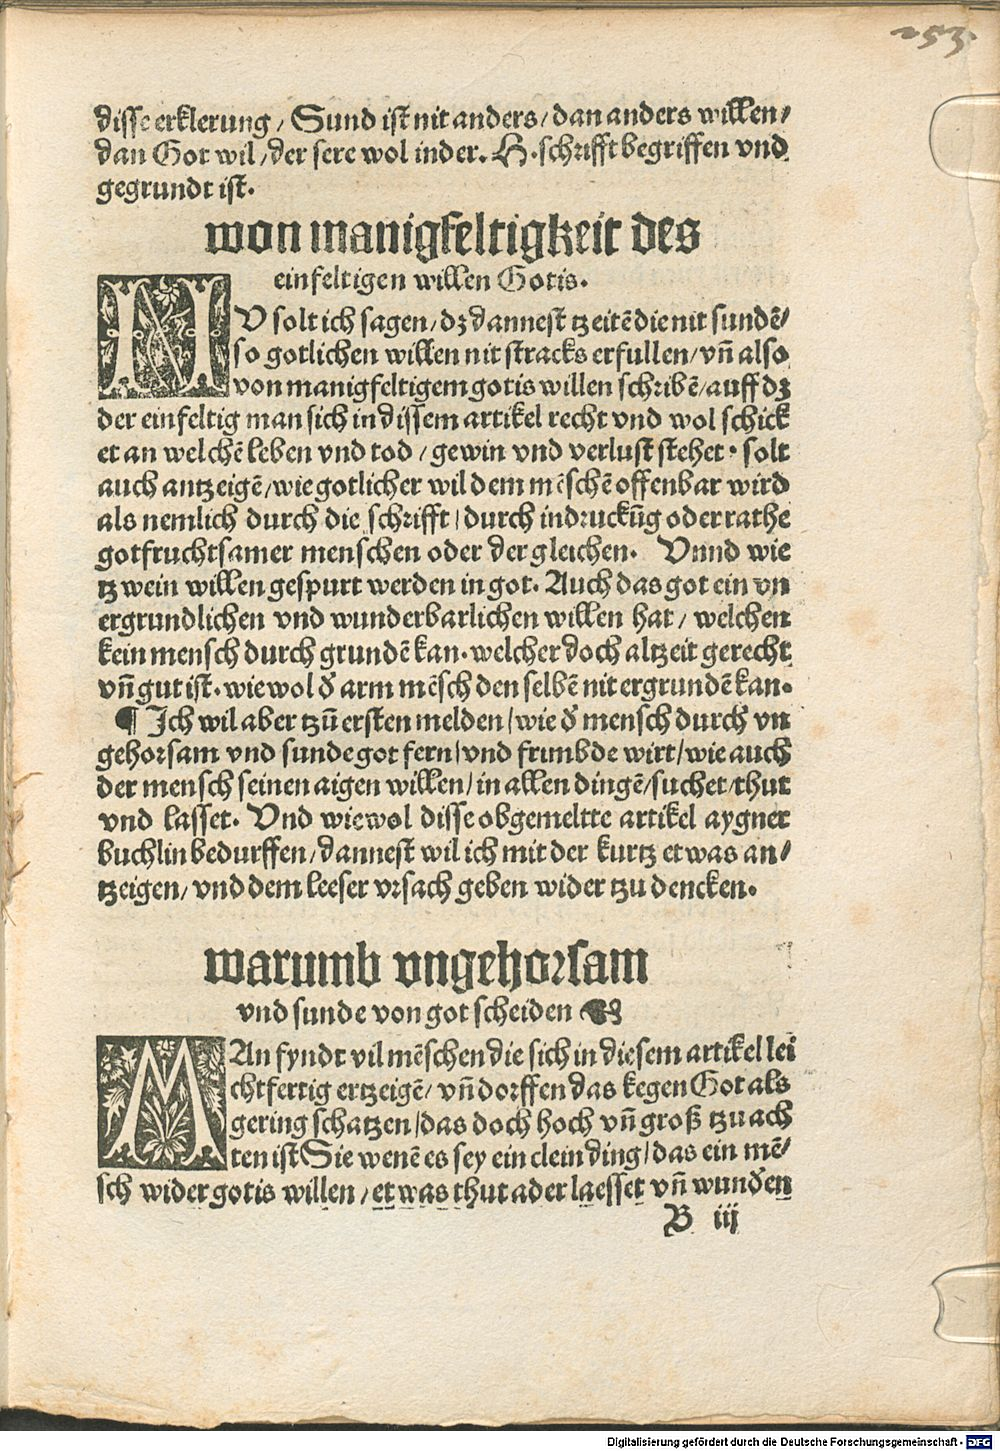 253
disse erklerung / Sund ist nit anders / dan anders willen /
dan Got wil / der sere wol in der. H. schrifft begriffen vnd
gegrundt ist.
won manigfeltigkeit des
einfeltigen willen Gotis.
NV solt ich sagen / dz dannest tzeitē die nit sundē /
so gotlichen willen nit stracks erfullen / vn̄ also
von manigfeltigem gotis willen schribē / auff dz
der einfeltig man sich in dissem artikel recht vnd wol schick
et an welchē leben vnd tod / gewin vnd verlust stehet. solt
auch antzeigē / wie gotlicher wil dem mēschē offenbar wird
als nemlich durch die schrifft / durch indruckūg oder rathe
gotfruchtsamer menschen oder der gleichen. Vnnd wie
tzwein willen gespurt werden in got. Auch das got ein vn
ergrundlichen vnd wunderbarlichen willen hat / welchen
kein mensch durch grundē kan. welcher doch altzeit gerecht
vn̄ gut ist. wiewol d̄ arm mēsch den selbē nit ergrundē kan.
¶ Ich wil aber tzū ersten melden / wie d̄ mensch durch vn
gehorsam vnd sunde got fern / vnd frimbde wirt / wie auch
der mensch seinen aigen willen / in allen dingē / suchet / thut
vnd lasset. Vnd wiewol disse obgemeltte artikel aygner
buchlin bedurffen / dannest wil ich mit der kurtz etwas an /
tzeigen / vnd dem leeser vrsach geben wider tzu dencken.
warumb vngehorsam
vnd sunde von got scheiden
MAn fyndt vil mēschen die sich in diesem artikel lei
chtfertig ertzeigē / vn̄ dorffen das kegen Got als
gering schatzen / das doch hoch vn̄ groß tzu ach
ten ist Sie wenē es sey ein clein ding / das ein mē /
sch wider gotis willen / etwas thut ader laesset vn̄ wund̄en
B iij
Digitalisierung gefördert durch die Deutsche Forschungsgemeinschaft - DFG